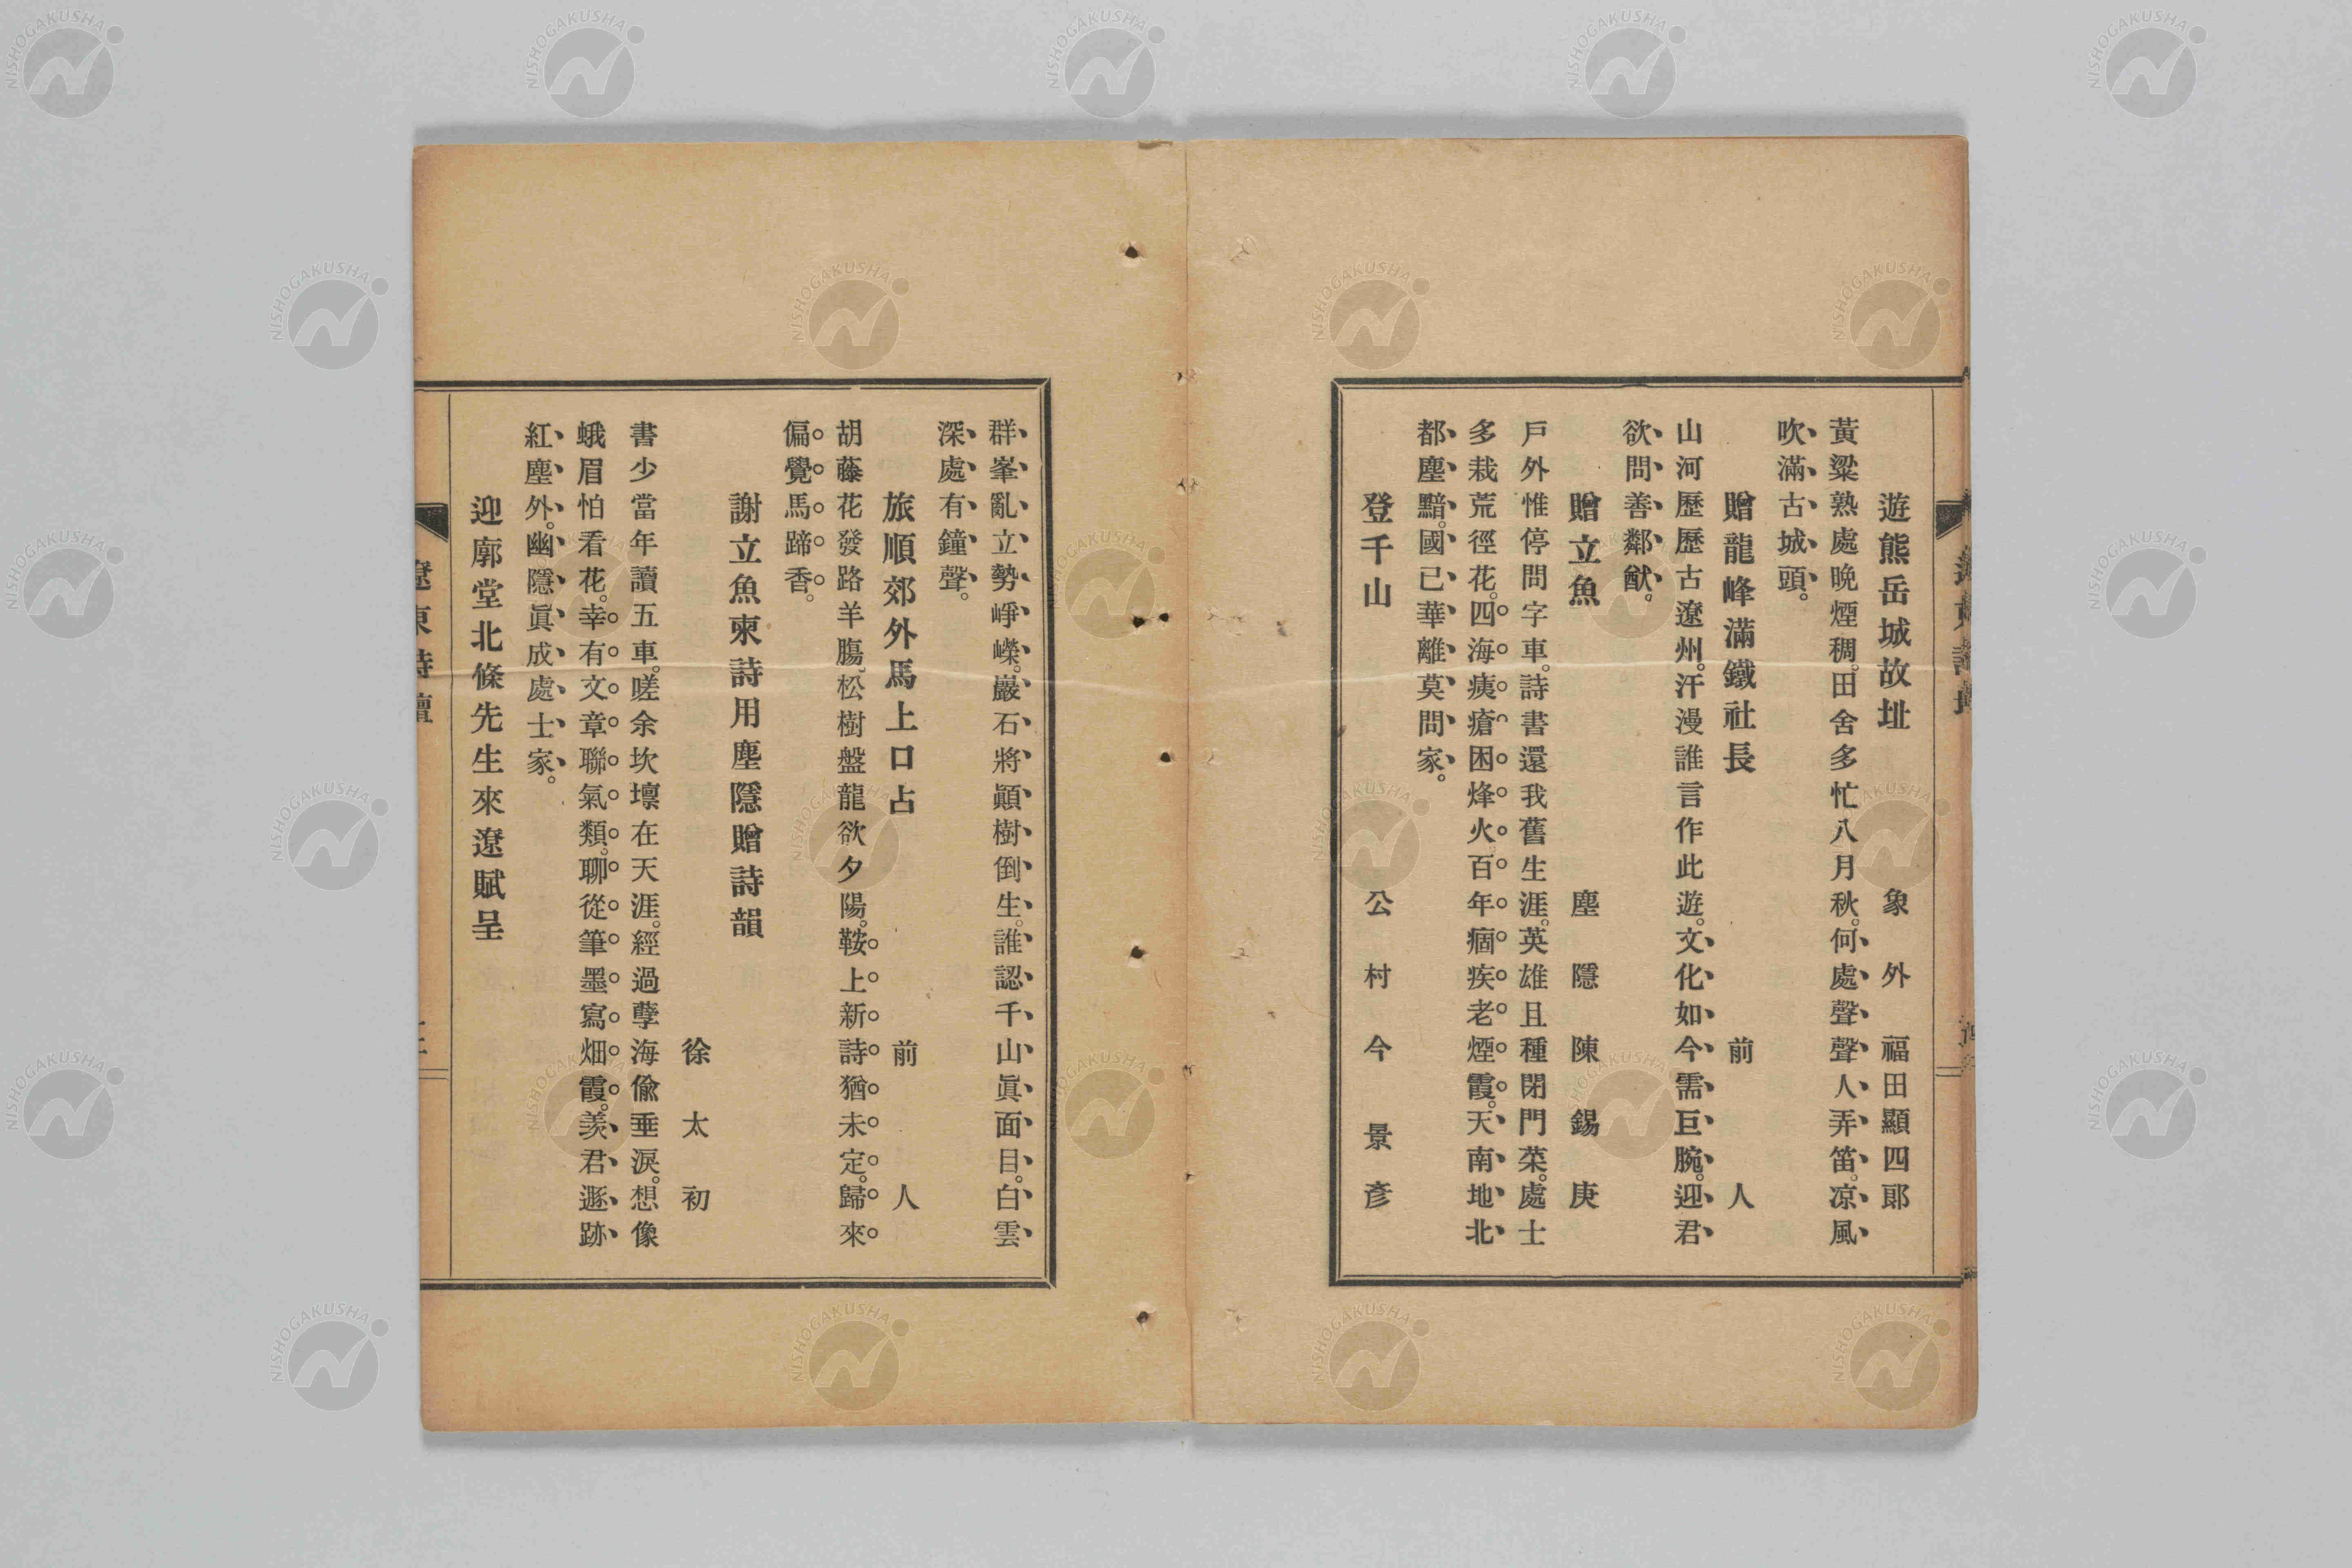 遊熊岳城故址　象外　福田顯四郞
黃粱熟處晚煙稠。田舍多忙八月秋。何處聲聲人弄笛。凉風
吹滿古城頭。
贈龍峰滿鐵社長　前人
山河歷歷古遼州。汗漫誰言作此遊。文化如今需巨腕。迎君
欲問善鄰猷。
贈立魚　塵隱　陳錫庚
戶外惟停問字車。詩書還我舊生涯。英雄且種閉門菜。處士
多栽荒徑花。四海痍瘡困烽火。百年痼疾老煙霞。天南地北
都塵黯。國已華離莫問家。
登千山　公村　今景彥
群峯亂立勢崢嶸。巖石將顚樹倒生。誰認千山眞面目。白雲
深處有鐘聲。
旅順郊外馬上口占　前人
胡藤花發路羊膓。松樹盤龍欲夕陽。鞍上新詩猶未定。歸來
偏覺馬蹄香。
謝立魚柬詩用塵隱贈詩韻
徐太初
書少當年讀五車。嗟余坎壈在天涯。經過孽海偸垂淚。想像
蛾眉怕看花。幸有文章聯氣類。聊從筆墨寫烟霞。羨君遯跡
紅塵外。幽隱眞成處士家。
迎廓堂北條先生來遼賦呈
遼東詩壇
NISHOGAKUSHA